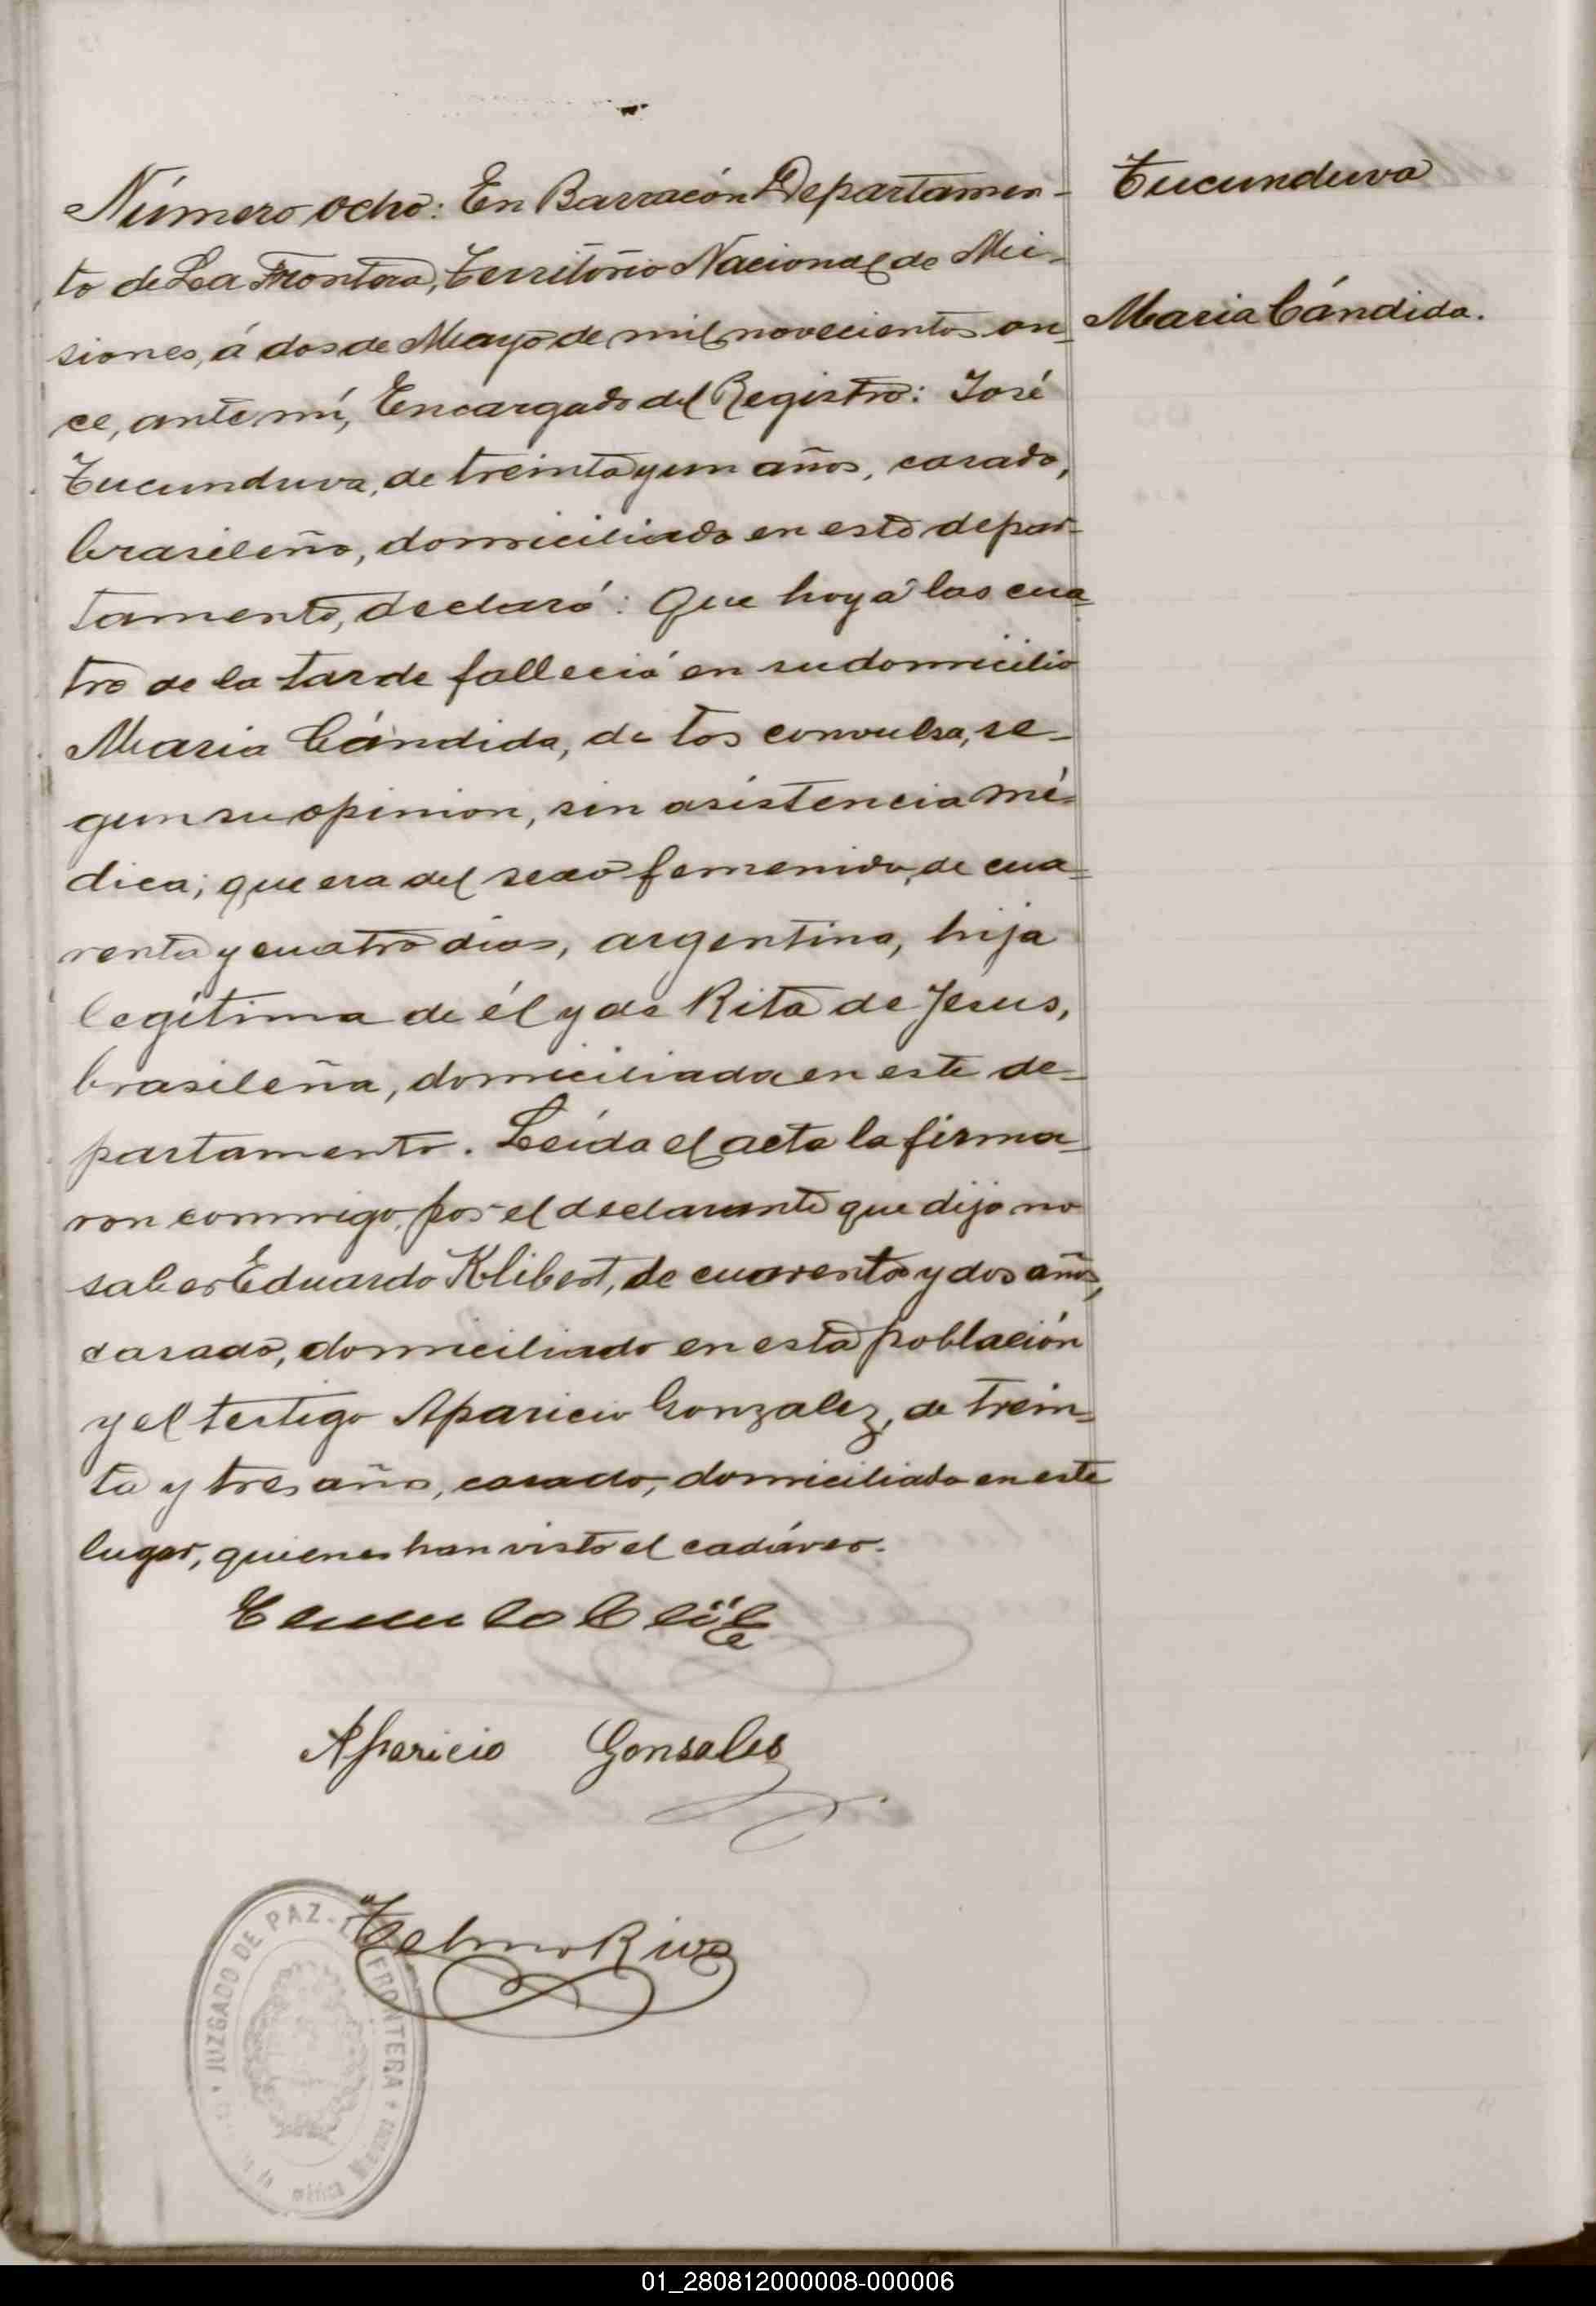 Número ocho: En Barracón Departamen-
to de La Frontera, Territorio Nacional de Mi-
siones, á dos de Mayo de mil novecientos on-
ce, ante mí, Encargado del Registro: José
Tucunduva, de treinta y un años, casado,
brasileño, domiciliado en este depar-
tamento, declaró: Que hoy á las cua-
tro de la tarde falleció en su domicilio
Maria Cándida, de tos convulsa, se-
gun su opinion, sin asistencia mé-
dica; que era del sexo femenido, de cua-
renta y cuatro dias, argentina, hija
legítima de él y de Rita de Jesus,
brasileña, domiciliada en este de-
partamento. Leída el acta la firma-
ron conmigo, por el declarante que dijo no
saber Eduardo Klibert, de cuarenta y dos años,
casado, domiciliado en esta población
y el testigo Aparicio Gonzalez, de trein-
ta y tres años, casado, domiciliado en este
lugar, quienes han visto el cadáver.
Tucunduva
Maria Cándida.
Aparicio Gonsales
Telmo Riva
JUZGADO DE PAZ - LA FRONTERA
01_280812000008-000006